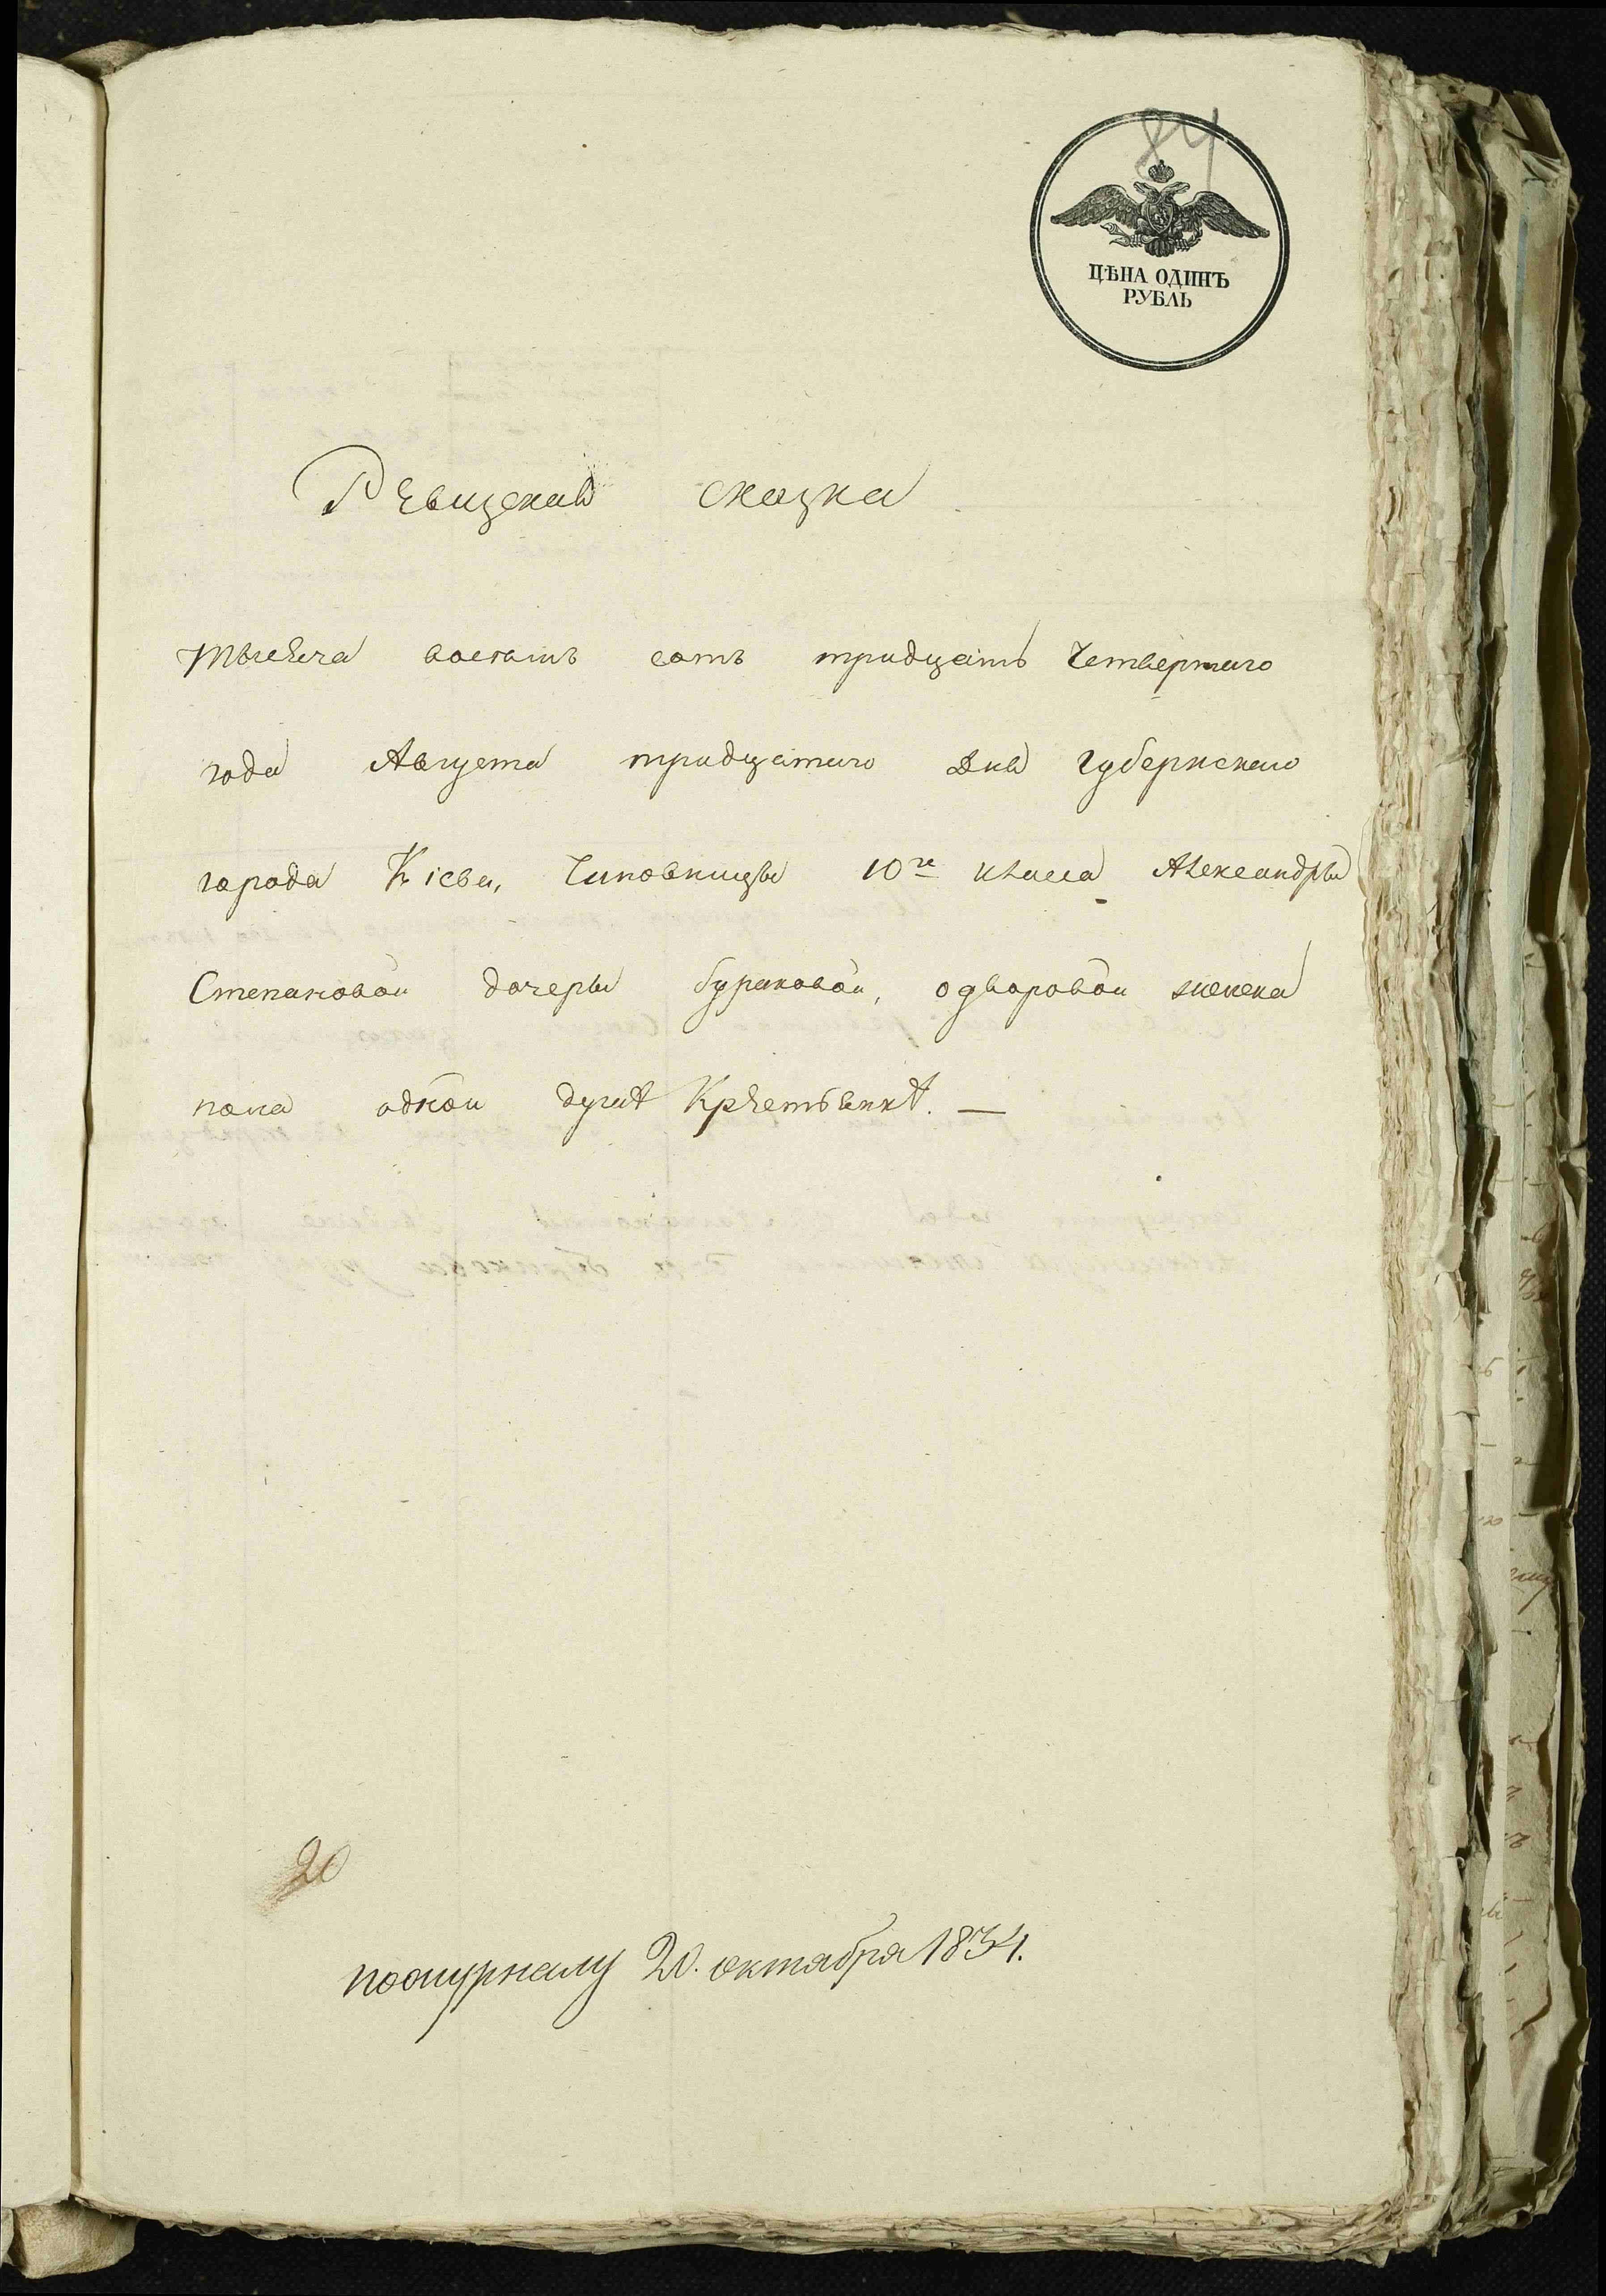 84
ЦѢНА ОДИНЪ
РУБЛЬ
Ревизская сказка
тысеча восемъ сотъ тридцать Четвертаго
года Августа тридцатаго дня Губернскаго
города Кіева, Чиновницы 10го класа Александры
Степановой дочеры бураковой, одворовой женска
пола одной души Крестьянкѣ. —
20
по журналу 20. октября 1834.